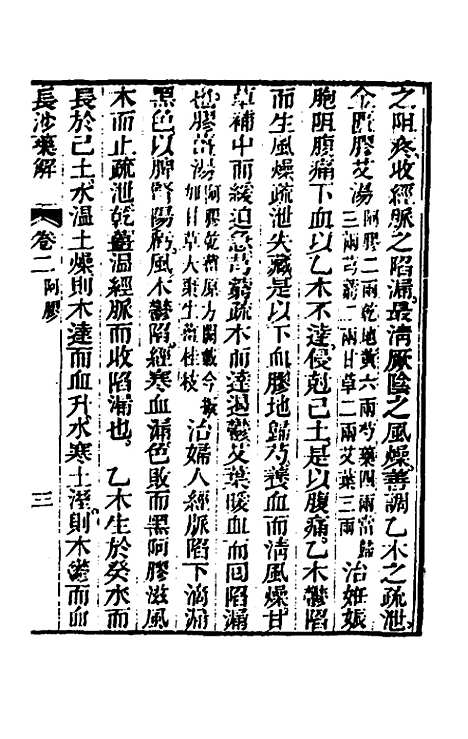 之阻疼收經脈之陷漏最淸厥陰之風燥善調乙木之疏泄
金匱膠艾湯阿膠二兩乾地黃六兩芍藥四兩當歸三兩芎藭二兩甘草二兩艾葉三兩治妊娠
胞阻腹痛下血以乙木不達侵剋己土是以腹痛乙木鬱陷
而生風燥疏泄失藏是以下血膠地歸芍養血而淸風燥甘
草補中而緩迫急芎藭疏木而達遏鬱艾葉暖血而回陷漏
也膠薑湯阿膠乾薑原方闕載今擬加甘草大棗生薑桂枝治婦人經脈陷下滴漏
黑色以脾腎陽虧風木鬱陷經寒血漏色敗而黑阿膠滋風
木而止疏泄乾薑溫經脈而收陷漏也 乙木生於癸水而
長於己土水溫土燥則木達而血升水寒土溼則木鬱而血
長沙藥解 卷二 阿膠 三